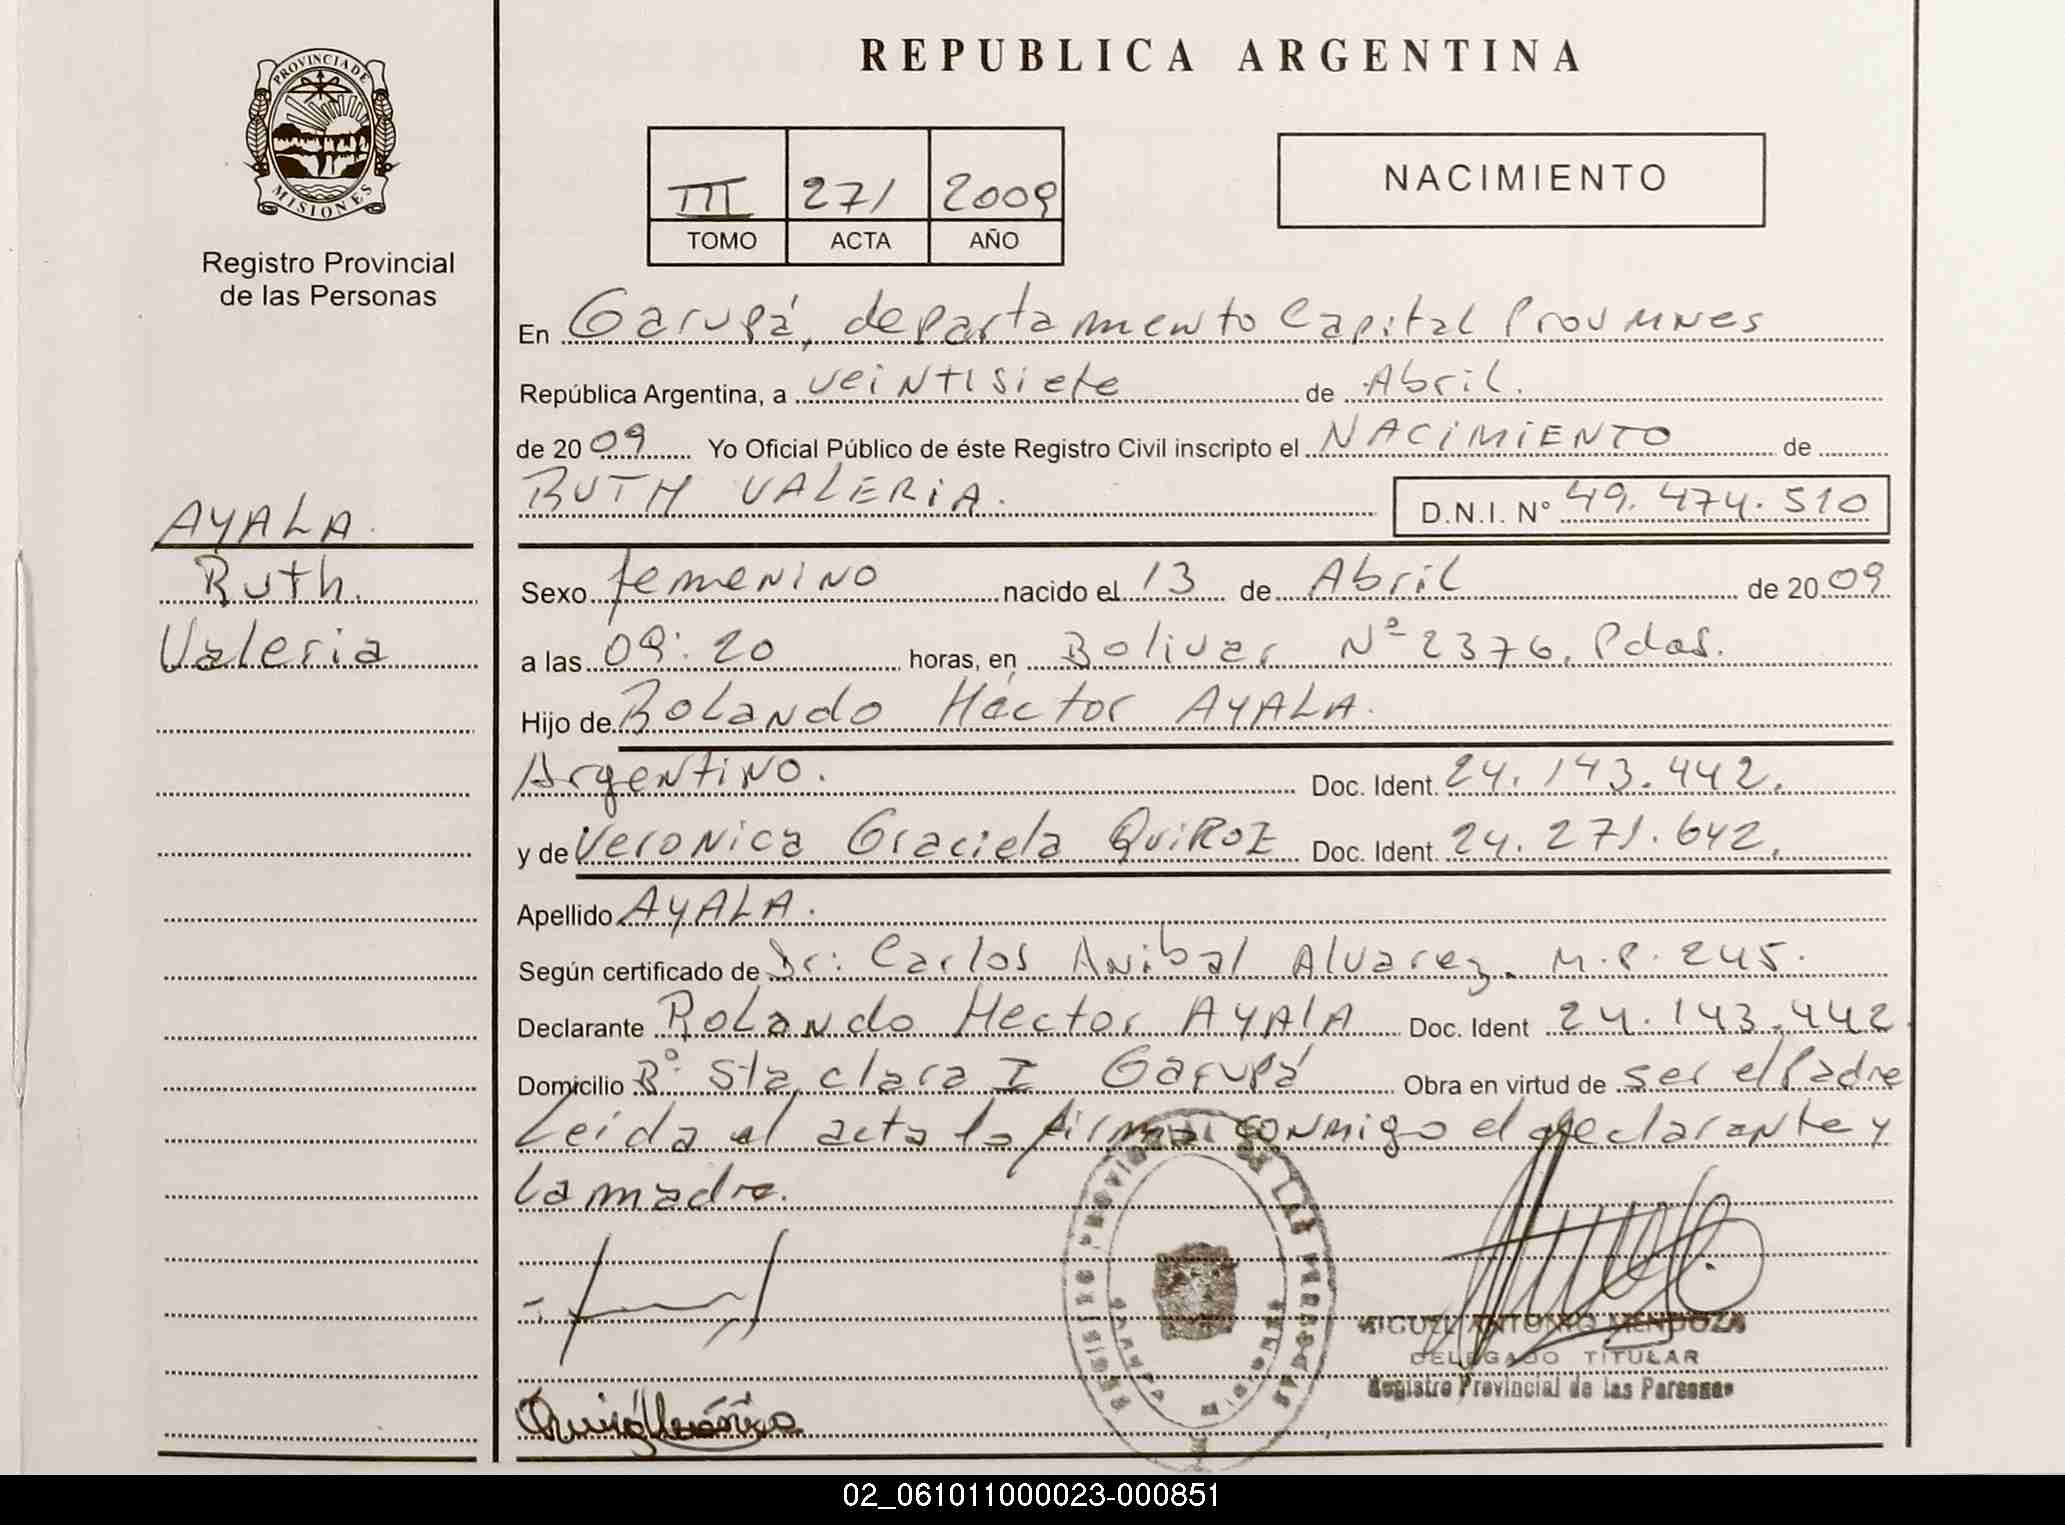 REPUBLICA ARGENTINA
PROVINCIA DE
MISIONES
Registro Provincial
de las Personas
III 271 2009
TOMO ACTA AÑO
NACIMIENTO
En Garupá, departamento Capital Prov MNes
República Argentina, a veintisiete de Abril.
de 2009 Yo Oficial Público de éste Registro Civil inscripto el NACIMIENTO de
RUTH VALERIA. D.N.I. Nº 49.474.510
AYALA.
Ruth.
Valeria
Sexo femenino nacido el 13 de Abril de 2009
a las 09:20 horas, en Bolivar Nº 2376, Pdas.
Hijo de Rolando Héctor AYALA.
Argentino. Doc. Ident. 24.143.442.
y de Veronica Graciela QuiROZ Doc. Ident. 24.271.642.
Apellido AYALA.
Según certificado de Dr: Carlos Anibal Alvarez. M.P. 245.
Declarante Rolando Hector AYALA Doc. Ident 24.143.442.
Domicilio Bº Sta clara I Garupá Obra en virtud de ser el Padre
Leida el acta la firma conmigo el declarante y
la madre.
REGISTRO PROVINCIAL DE LAS PERSONAS
MIGUEL ANTONIO MENDOZA
DELEGADO TITULAR
Registro Provincial de las Personas
02_061011000023-000851